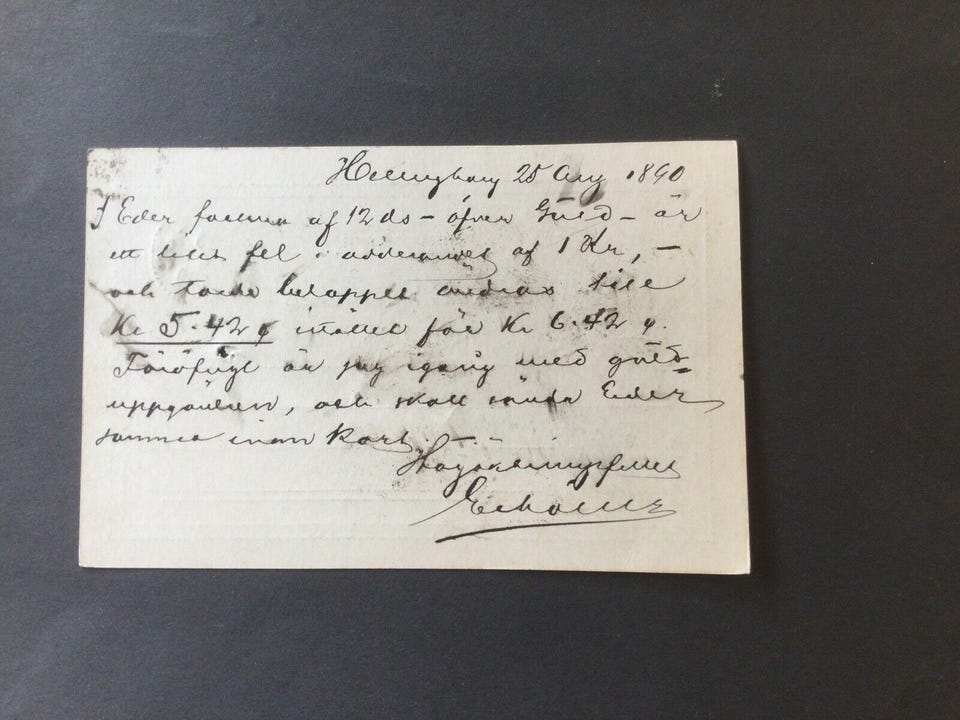 Helsingborg 25 Aug 1890
I Eder factura af 12 ds – öfver Gods – är
ett litet fel i adderandet af 1 Kr, –
och torde beloppet ändras till
Kr 5.42 ç istället för Kr 6.42 ç.
är jag igång med
uppgörelsen, och skall sända Eder
samma inom kort.
Högaktningsfullt